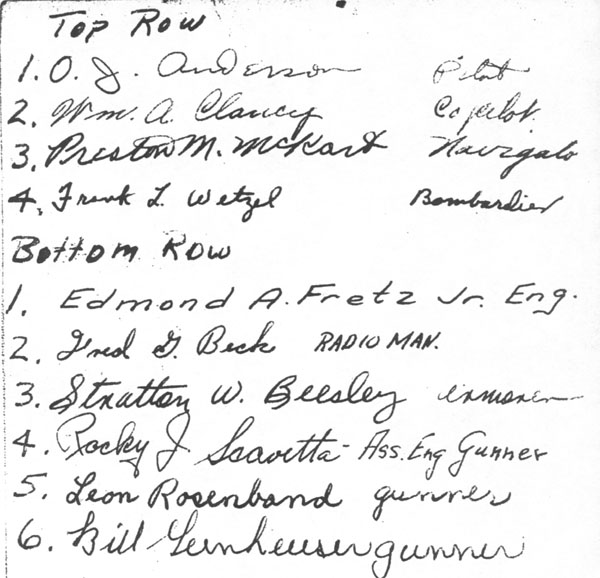 Top Row
1. O. J. Anderson Pilot
2. Wm. A. Clancy Copilot.
3. Preston M. McKart Navigato
4. Frank L. Wetzel Bombardier
Bottom Row
1. Edmond A. Fretz Jr. Eng.
2. Fred G. Beck RADIO MAN.
3. Stratton W. Beesley
4. Rocky J Scavetta - Ass. Eng Gunner
5. Leon Rosenband gunner
6. Bill gunner